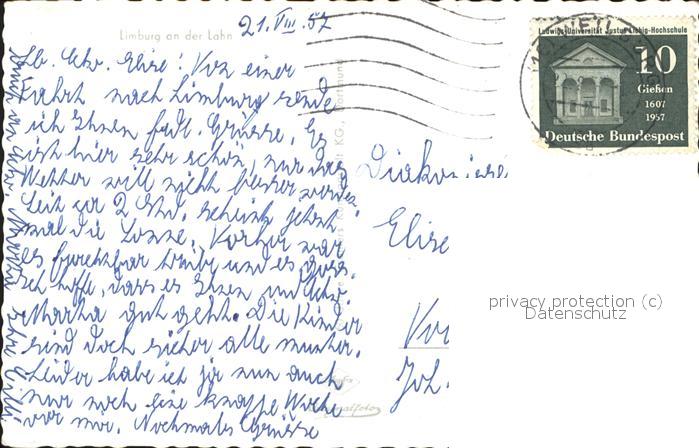 Limburg an der Lahn
21. VIII. 57
Lb. Schw. Elise! Von einer
Fahrt nach Limburg sende
ich Ihnen fdl. Grüsse. Es
ist hier sehr schön, nur das
Wetter will nicht besser werden.
Seit ca 2 Std. scheint jetzt
mal die Sonne. Vorher war
es furchtbar trüb und es goss.
Ich hoffe, dass es Ihnen und Schw.
Martha gut geht. Die Kinder
sind doch sicher alle munter.
Leider habe ich ja nun auch
nur noch eine knappe Woche
vor mir. Nochmals Grüsse
auch an Schw. Martha
Diakonisse
Elise
Joh.
Ludwigs-Universität Justus Liebig-Hochschule
10
Gießen
1607
1957
Deutsche Bundespost
privacy protection (c)
Datenschutz